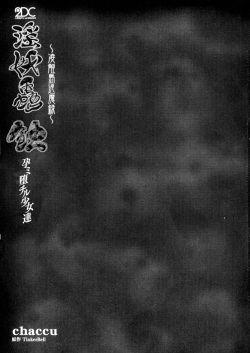 2DC
淫妖蟲
蝕
孕ミ堕チル少女達
chaccu
原作 TinkerBell